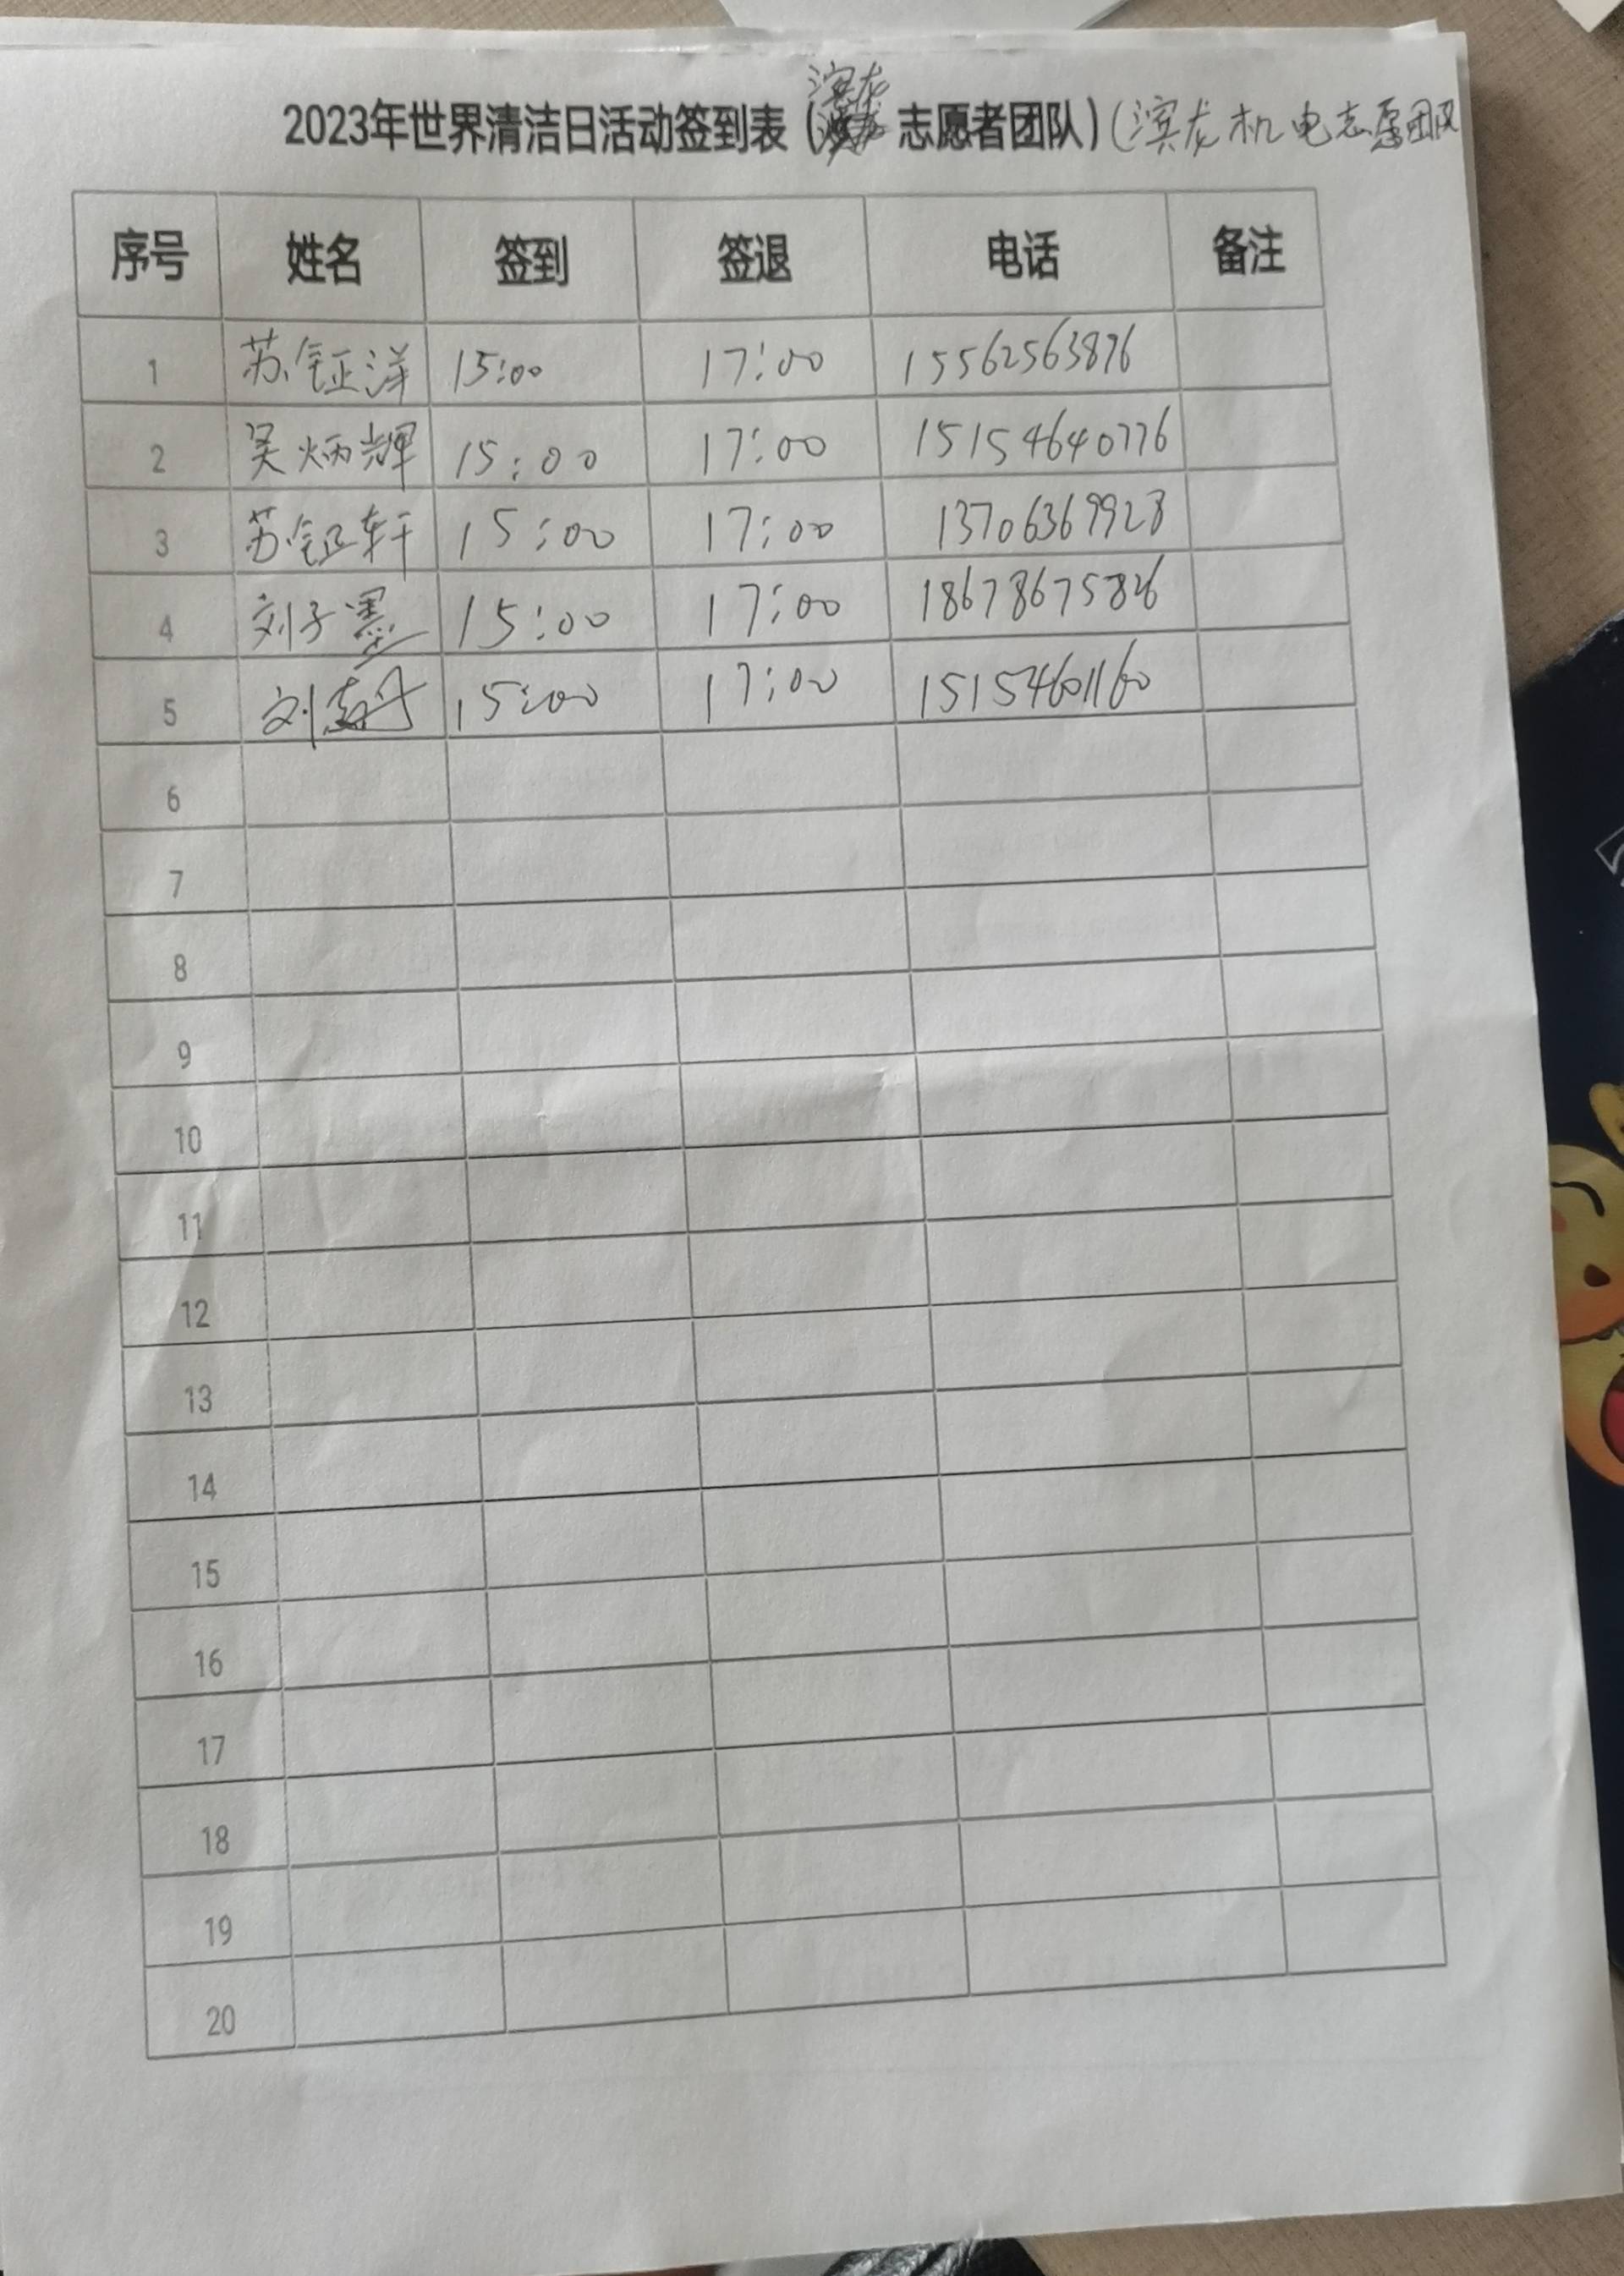 滨龙
2023年世界清洁日活动签到表( 志愿者团队)(滨龙机电志愿团队
序号 姓名 签到 签退 电话 备注
1 苏钰洋 15:00 17:00 15562563876
2 吴炳辉 15:00 17:00 15154640776
3 苏钰轩 15:00 17:00 13706369928
4 刘子墨 15:00 17:00 18678675826
5 刘 15:00 17:00 15154601160
6
7
8
9
10
11
12
13
14
15
16
17
18
19
20